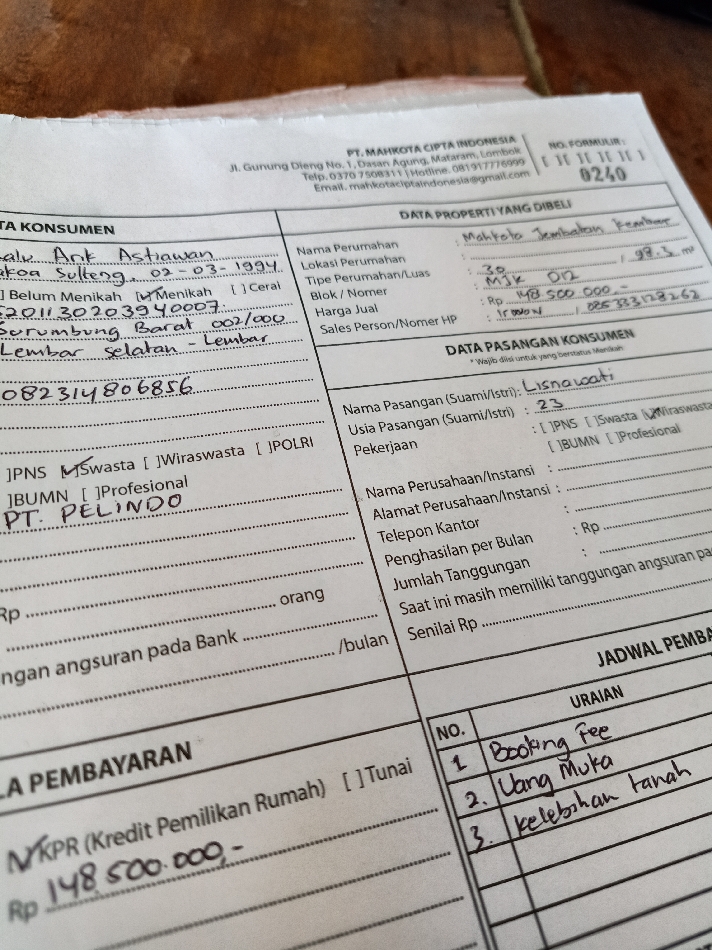 PT. MAHKOTA CIPTA INDONESIA
Jl. Gunung Dieng No. 1, Dasan Agung, Mataram, Lombok
Telp. 0370 7508311 | Hotline. 081917776999
Email. mahkotaciptaindonesia@gmail.com
NO. FORMULIR :
[ ][ ][ ][ ][ ]
0240
TA KONSUMEN
Arik Astiawan
Sulteng, 02-03-1994
] Belum Menikah [✓] Menikah [ ] Cerai
5201130203940007
Barat 002/000
Lembar selatan - Lembar
082314806856
]PNS [✓]Swasta [ ]Wiraswasta [ ]POLRI
]BUMN [ ]Profesional
PT. PELINDO
Rp ........ orang
ngan angsuran pada Bank ........
/bulan
DATA PROPERTI YANG DIBELI
Nama Perumahan : Mahkota Jembatan Kembar
Lokasi Perumahan
Tipe Perumahan/Luas : 30 / 98.5 m²
Blok / Nomer : MJK 012
Harga Jual : Rp 148.500.000.-
Sales Person/Nomer HP : / 085333128262
DATA PASANGAN KONSUMEN
* Wajib diisi untuk yang berstatus Menikah
Nama Pasangan (Suami/Istri) : Lisnawati
Usia Pasangan (Suami/Istri) : 23
Pekerjaan : [ ]PNS [ ]Swasta [✓]Wiraswasta
[ ]BUMN [ ]Profesional
Nama Perusahaan/Instansi :
Alamat Perusahaan/Instansi :
Telepon Kantor :
Penghasilan per Bulan : Rp
Jumlah Tanggungan :
Saat ini masih memiliki tanggungan angsuran pa
Senilai Rp
LA PEMBAYARAN
[✓]KPR (Kredit Pemilikan Rumah) [ ]Tunai
Rp 148.500.000,-
JADWAL PEMBA
NO. URAIAN
1 Booking Fee
2. Uang Muka
3. Kelebihan tanah